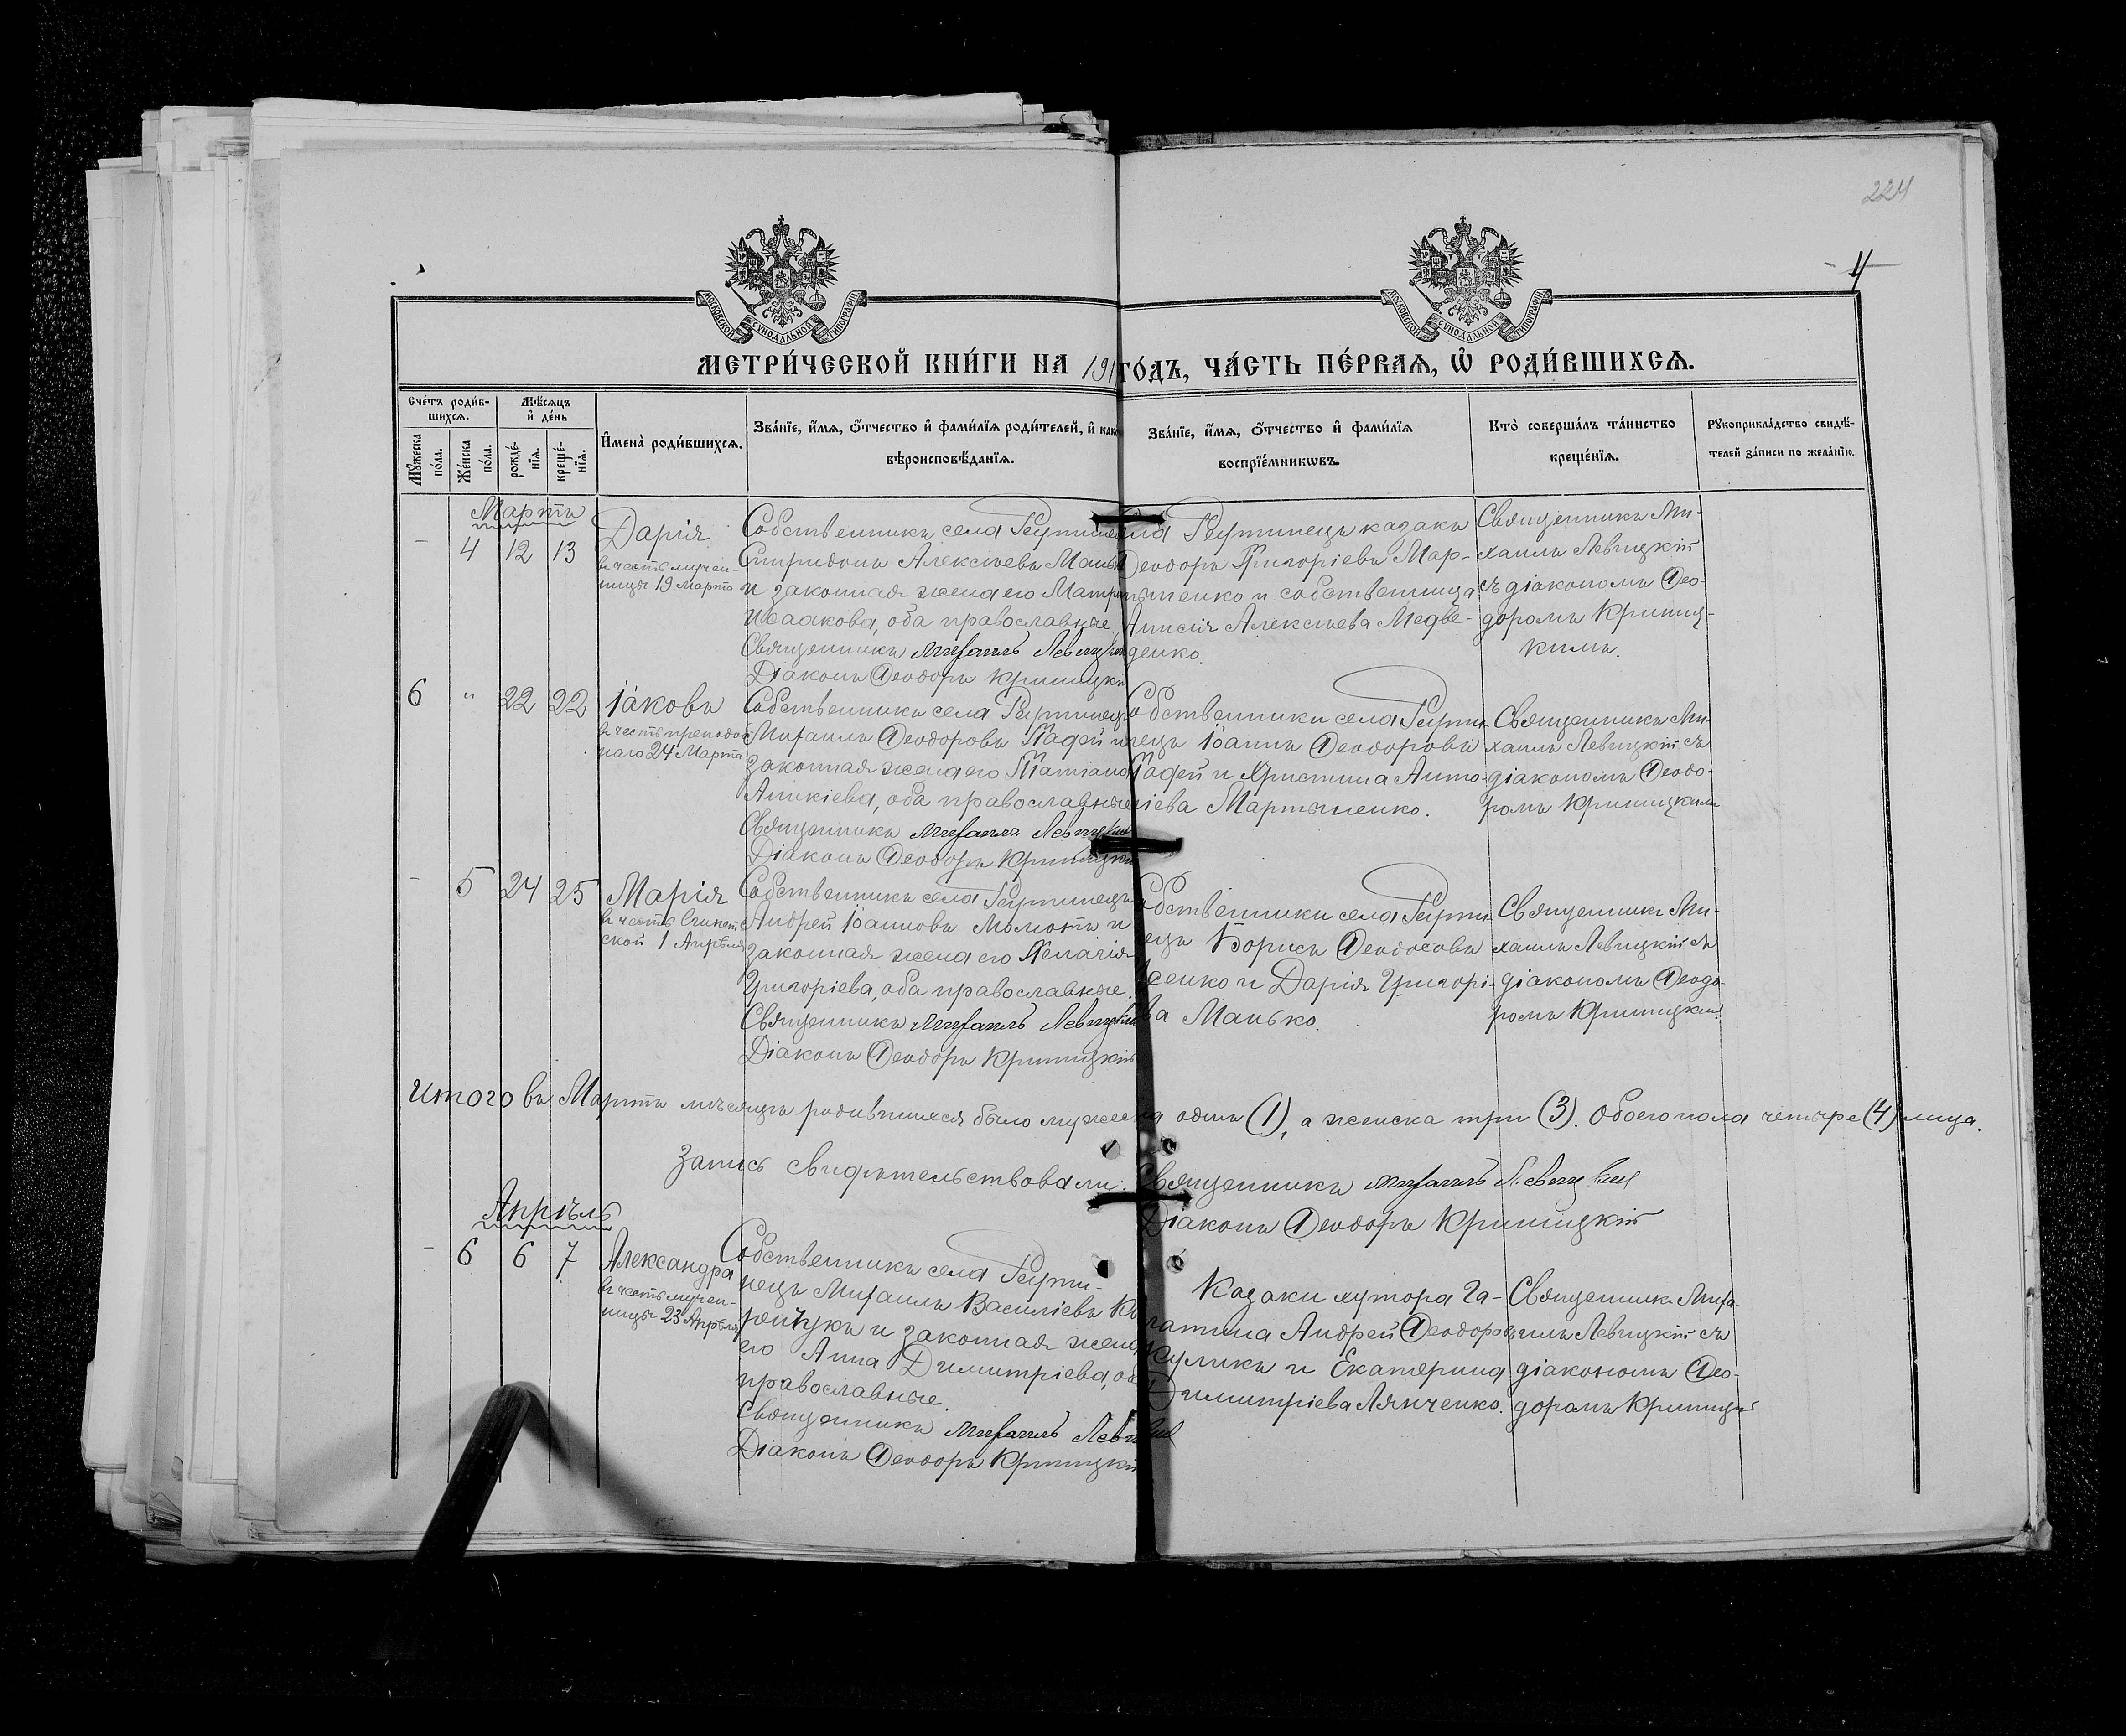 224
4
МОСКОВСКОЙ СѴНОДАЛЬНОЙ ТИПОГРАФІИ
МОСКОВСКОЙ СѴНОДАЛЬНОЙ ТИПОГРАФІИ
МЕТРИ́ЧЕСКОЙ КНИ́ГИ НА 191 ГО́ДЪ, ЧА́СТЬ ПЕ́РВАѦ, Ѡ҆ РОДИ́ВШИХСѦ.
Сче́тъ роди́в-
шихсѧ.
Мѣ́сѧцъ
и҆ де́нь
Мꙋ́жеска
по́ла.
Же́нска
по́ла.
рожде́-
нїѧ.
креще́-
нїѧ.
И҆мена̀ роди́вшихсѧ.
Зва́нїе, и҆́мѧ, ѻ҆́тчество и҆ фами́лїѧ роди́телей, и҆ как
вѣроисповѣ́данїѧ.
Зва́нїе, и҆́мѧ, ѻ҆́тчество и҆ фами́лїѧ
воспрїе́мникѡвъ.
Кто̀ соверша́лъ та́инство
креще́нїѧ.
Рꙋкоприкла́дство свидѣ́-
телей за́писи по жела́нїю.
Мартъ
- 4 12 13
Дарія
въ честь мучен-
ницы 19 Марта
Собственникъ села
Спиридонъ Алексѣевъ
и законная жена его
Исаакова, оба православные
Священникъ Михаилъ Левицкій
Діаконъ Ѳеодоръ Криницкій
казакъ
Ѳеодоръ Григоріевъ Мар-
тыненко и собственница
Анисія Алексѣева Медве-
денко.
Священникъ Ми-
хаилъ Левицкій
съ діакономъ Ѳео-
доромъ Криниц-
кимъ.
6 " 22 22
Іаковъ
въ честь преподоб
наго 24 Марта
Собственникъ села
Михаилъ Ѳеодоровъ Гадей и
законная жена его
Аникіева, оба православные
Священникъ Михаилъ Левицкій
Діаконъ Ѳеодоръ Криницкій
Собственники села
нецъ Іоаннъ Ѳеодоровъ
Гадей и Христина Анто-
ніева Мартыненко.
Священникъ Ми-
хаилъ Левицкій съ
діакономъ Ѳеодо-
ромъ Криницкимъ
- 5 24 25
Марія
въ честь Египет
ской 1 Апрѣля
Собственникъ села
Андрей Іоанновъ и
законная жена его Пелагія
Григоріева, оба православные.
Священникъ Михаилъ Левицкій
Діаконъ Ѳеодоръ Криницкій
Собственники села
нецъ Борисъ
и Дарія Григорі-
ева Манько.
Священникъ Ми-
хаилъ Левицкій съ
діакономъ Ѳеодо-
ромъ Криницкимъ
Итого въ Мартѣ мѣсяцѣ родившихся было мужеска одинъ (1), а женска три (3). Обоего пола четыре (4) лица.
Запись свидѣтельствовали: Священникъ Михаилъ Левицкій
Діаконъ Ѳеодоръ Криницкій
Апрѣль
- 6 6 7
Александра
въ честь мучен-
ницы 23 Апрѣля
Собственникъ села
нецъ Михаилъ Василіевъ
и законная жена
его Анна Димитріева, оба
православные.
Священникъ Михаилъ Левицкій
Діаконъ Ѳеодоръ Криницкій
Казаки хутора Га-
Андрей Ѳеодоровъ
Куликъ и Екатерина
Димитріева Лянченко.
Священникъ Миха-
илъ Левицкій съ
діакономъ Ѳео-
доромъ Криницкимъ